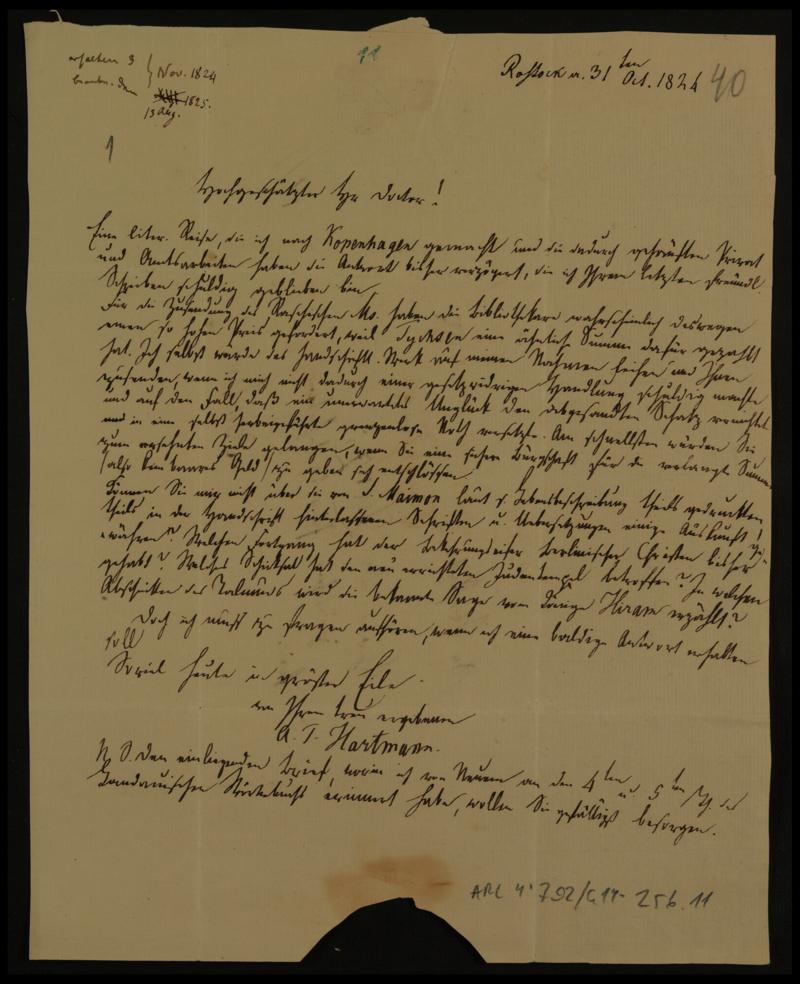 erhalten 3 } Nov. 1824
beantw. den
1825.
13 Aug.
11
Rostock a. 31ten Oct. 1824
40
1
Hochgeschätzter Hr Doctor!
Eine liter. Reise, die ich nach Kopenhagen gemacht und die dadurch gehäuften Privat
und Amtsarbeiten haben die Antwort bisher verzögert, die ich Ihrem letzten freundl.
Schreiben schuldig geblieben bin.
Für die Zusendung des Raschischen Ms. haben die Bibliothekare wahrscheinlich deswegen
einen so hohen Preis gefordert, weil Tychsen eine ähnliche Summe dafür gezahlt
hat. Ich selbst würde das handschriftl. Werk auf meinen Nahmen leihen und Ihnen
zusenden, wenn ich mich nicht dadurch einer gesetzwidrigen Handlung schuldig machte
und auf den Fall, daß ein unerwartetes Unglück den abgesandten Schatz vernichtet
und in eine selbst herbeigeführte grenzenlose Noth versetzte. Am schnellsten würden Sie
zum ersehnten Ziele gelangen, wenn Sie eine sichere Bürgschaft für die verlangte Summe
(also kein baares Geld) zu geben sich entschlössen.
Können Sie mir nicht über die von S. Maimon laut s. Lebensbeschreibung theils gedruckten
theils in der Handschrift hinterlassenen Schriften u. Uebersetzungen einige Auskunft
gewähren? Welchen Fortgang hat der Bekehrungseifer Berlinischer Christen bisher
gehabt? Welches Schicksal hat den neu errichteten Judentempel betroffen? In welchen
Abschnitten des Talmuds wird die bekannte Sage vom Könige Hiram erzählt?
Doch ich muß zu fragen aufhören, wenn ich eine baldige Antwort erhalten
soll
Soviel heute in größter Eile
von Ihrem treu ergebenen
A. T. Hartmann.
N. S. Den einliegenden Brief, worin ich von Neuem an den 4ten u. 5ten Th. des
Landauischen Wörterbuchs erinnert habe, wollen Sie gefälligst besorgen.
ARC 4° 792/C14- 256.11